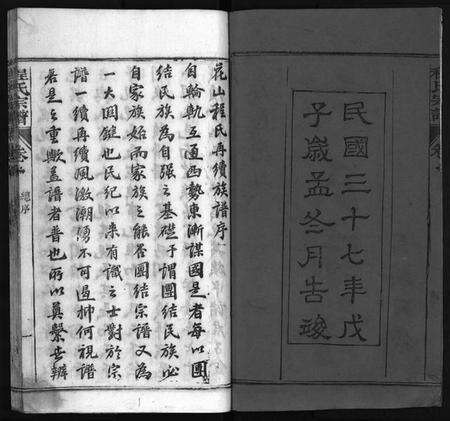 民國三十七年戊
子歲孟冬月告竣
花山程氏再續族譜序
自輪軌互通西勢東漸謀國是者每以團
結民族為自強之基礎予謂團結民族必
自家族始而家族之能否團結宗譜又為
一大關鍵也民紀以来有識之士對於宗
譜一續再續風激潮湧不可遏抑何視譜
若是之重歟蓋譜者普也所以奠繫世辨
程氏宗譜
卷首
總序
一